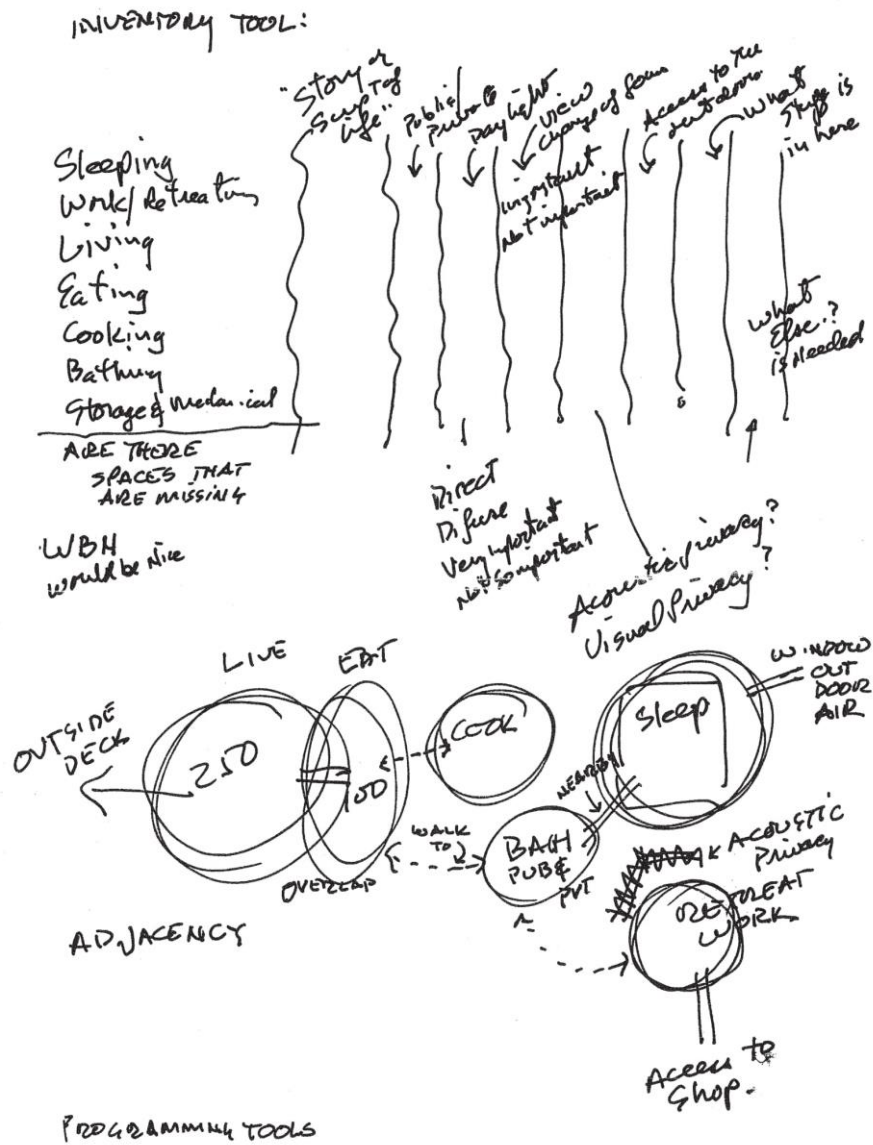 INVENTORY TOOL:
"Story or
Script of
Life"
Public/
Private
Daylight
View
Change of
Important
Not important
Access to the
outdoors
What
Stuff is
in here
Sleeping
Work/Retreating
Living
Eating
Cooking
Bathing
Storage & Mechanical
What
Else?
is Needed
ARE THERE
SPACES THAT
ARE MISSING
WBN
would be nice
Direct
Difuse
Very important
Not so important
Acoustic privacy?
Visual Privacy?
LIVE
EAT
COOK
Sleep
WINDOW
OUT
DOOR
AIR
OUTSIDE
DECK
250
100
NEARBY
WALK
TO
BATH
PUB &
PVT
OVERLAP
ACOUSTIC
Privacy
RETREAT
WORK
ADJACENCY
Access to
Shop.
PROGRAMMING TOOLS